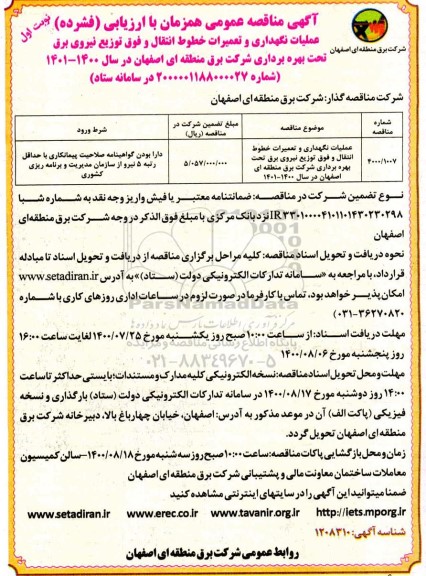 نوبت اول
آگهی مناقصه عمومی همزمان با ارزیابی (فشرده)
عملیات نگهداری و تعمیرات خطوط انتقال و فوق توزیع نیروی برق
تحت بهره برداری شرکت برق منطقه ای اصفهان در سال ۱۴۰۰-۱۴۰۱
(شماره ۲۰۰۰۰۰۱۱۸۸۰۰۰۰۲۷ در سامانه ستاد)
شرکت برق منطقه ای اصفهان
شرکت مناقصه گذار: شرکت برق منطقه ای اصفهان
شماره مناقصه
موضوع مناقصه
مبلغ تضمین شرکت در مناقصه (ریال)
شرط ورود
۴۰۰۰/۱۰۰۷
عملیات نگهداری و تعمیرات خطوط
انتقال و فوق توزیع نیروی برق تحت
بهره برداری شرکت برق منطقه ای
اصفهان در سال ۱۴۰۰-۱۴۰۱
۵/۰۵۷/۰۰۰/۰۰۰
دارا بودن گواهینامه صلاحیت پیمانکاری با حداقل
رتبه ۵ نیرو از سازمان مدیریت و برنامه ریزی
کشوری
نوع تضمین شرکت در مناقصه: ضمانتنامه معتبر یا فیش واریز وجه نقد به شماره شبا
IR۳۳۰۱۰۰۰۰۴۱۰۱۱۰۱۴۳۰۲۳۰۲۹۸ نزد بانک مرکزی با مبلغ فوق الذکر در وجه شرکت برق منطقه ای
اصفهان
نحوه دریافت و تحویل اسناد مناقصه: کلیه مراحل برگزاری مناقصه از دریافت و تحویل اسناد تا مبادله
قرارداد، با مراجعه به «سامانه تدارکات الکترونیکی دولت (ستاد)» به آدرس www.setadiran.ir
امکان پذیر خواهد بود. تماس با کارفرما در صورت لزوم در ساعات اداری روزهای کاری با شماره
(۰۳۱-۳۶۲۷۰۸۲۰)
مهلت دریافت اسناد: از ساعت ۱۰:۰۰ صبح روز یکشنبه مورخ ۱۴۰۰/۰۷/۲۵ لغایت ساعت ۱۶:۰۰
روز پنجشنبه مورخ ۱۴۰۰/۰۸/۰۶
مهلت و محل تحویل اسناد مناقصه: نسخه الکترونیکی کلیه مدارک و مستندات؛ بایستی حداکثر تا ساعت
۱۴:۰۰ روز دوشنبه مورخ ۱۴۰۰/۰۸/۱۷ در سامانه تدارکات الکترونیکی دولت (ستاد) بارگذاری و نسخه
فیزیکی (پاکت الف) آن در موعد مذکور به آدرس: اصفهان، خیابان چهارباغ بالا، دبیرخانه شرکت برق
منطقه ای اصفهان تحویل گردد.
زمان و محل بازگشایی پاکات مناقصه: ساعت ۱۰:۰۰ صبح روز سه شنبه مورخ ۱۴۰۰/۰۸/۱۸ - سالن کمیسیون
معاملات ساختمان معاونت مالی و پشتیبانی شرکت برق منطقه ای اصفهان
ضمنا میتوانید این آگهی را در سایتهای اینترنتی مشاهده کنید
http://iets.mporg.ir www.tavanir.org.ir www.erec.co.ir www.setadiran.ir
شناسه آگهی: ۱۲۰۸۳۱۰
روابط عمومی شرکت برق منطقه ای اصفهان
ParsNamadData
۰۲۱-۸۸۳۴۹۶۷۰-۵